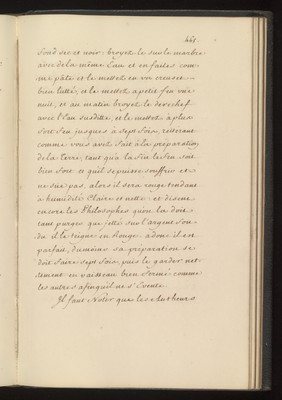 465
fond sec et noir: broyez le sur le marbre
avec de la même Eau et en faites com-
me pâte et le mettez en un creuset
bien lutté, et le mettez a petit feu une
nuit, et au matin broyez le derechef
avec l'Eau susditte, et le mettez a plus
fort feu jusques a sept fois, reiterant
comme vous avez fait a la preparation
de la terre; tant qu'a la fin le feu soit
bien fort et qu'il le puisse souffrir et
ne fuie pas, alors il sera rouge tendant
a humidité Claire et nette: et disent
encore les Philosophes qu'on la doit
tant purger que jetté sur l'argent fon-
du il le teigne en Rouge. adonc il est
parfait, du moins sa préparation se
doit faire sept fois, puis le garder net-
tement en vaisseau bien fermé comme
les autres afin qu'il ne s'Evente.
Il faut Noter que les Autheurs